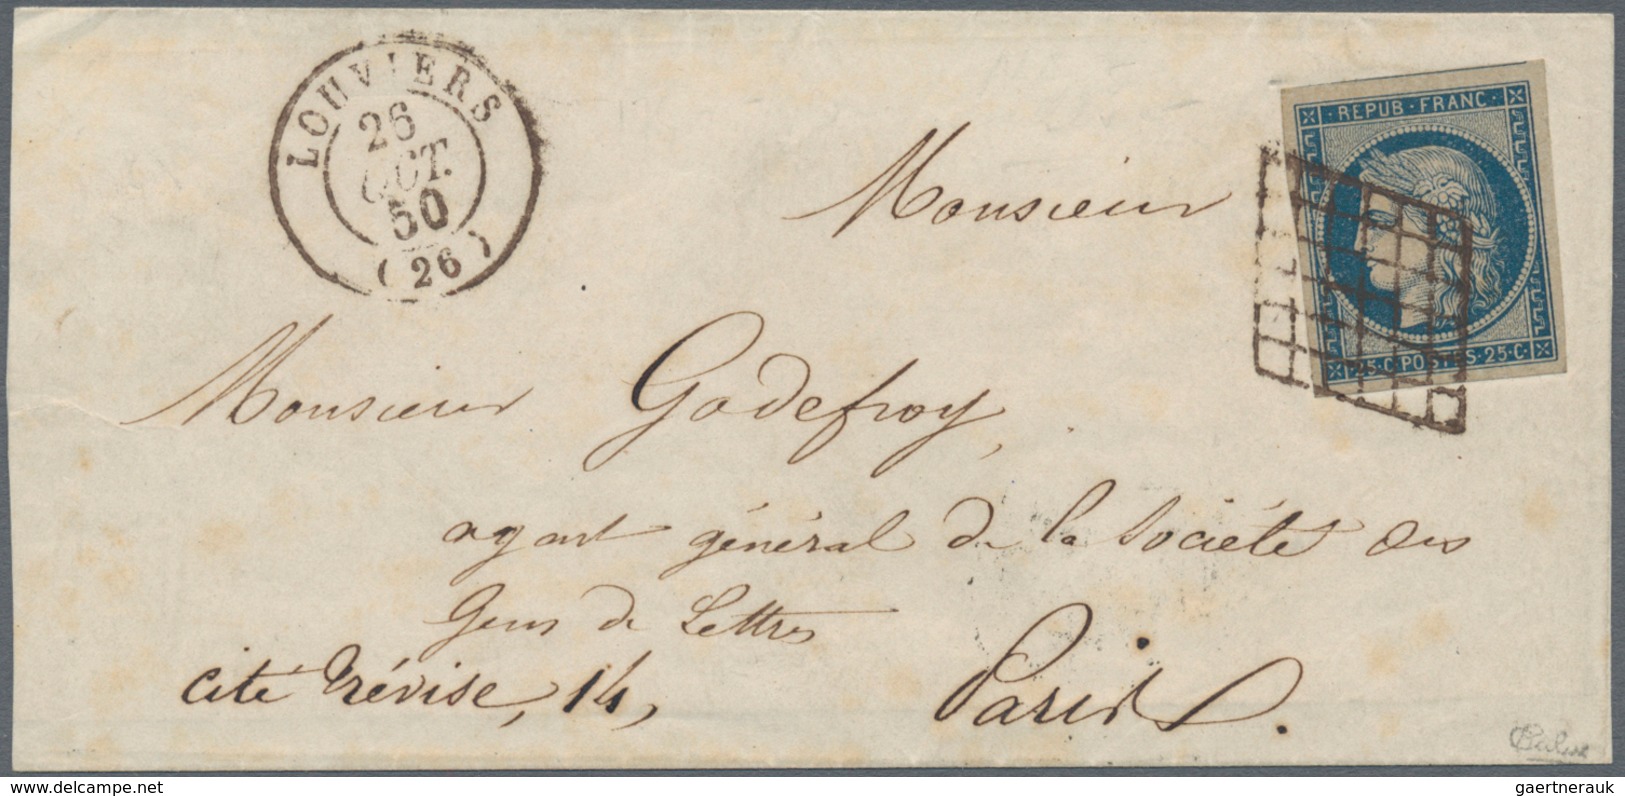 LOUVIERS
26
OCT.
50
(26)
REPUB·FRANC·
25·C·POSTES·25·C·
Monsieur
Monsieur Godefroy,
agent général de la Société des
Gens de Lettres
cité Trévise, 14, Paris.
gaertnerauk